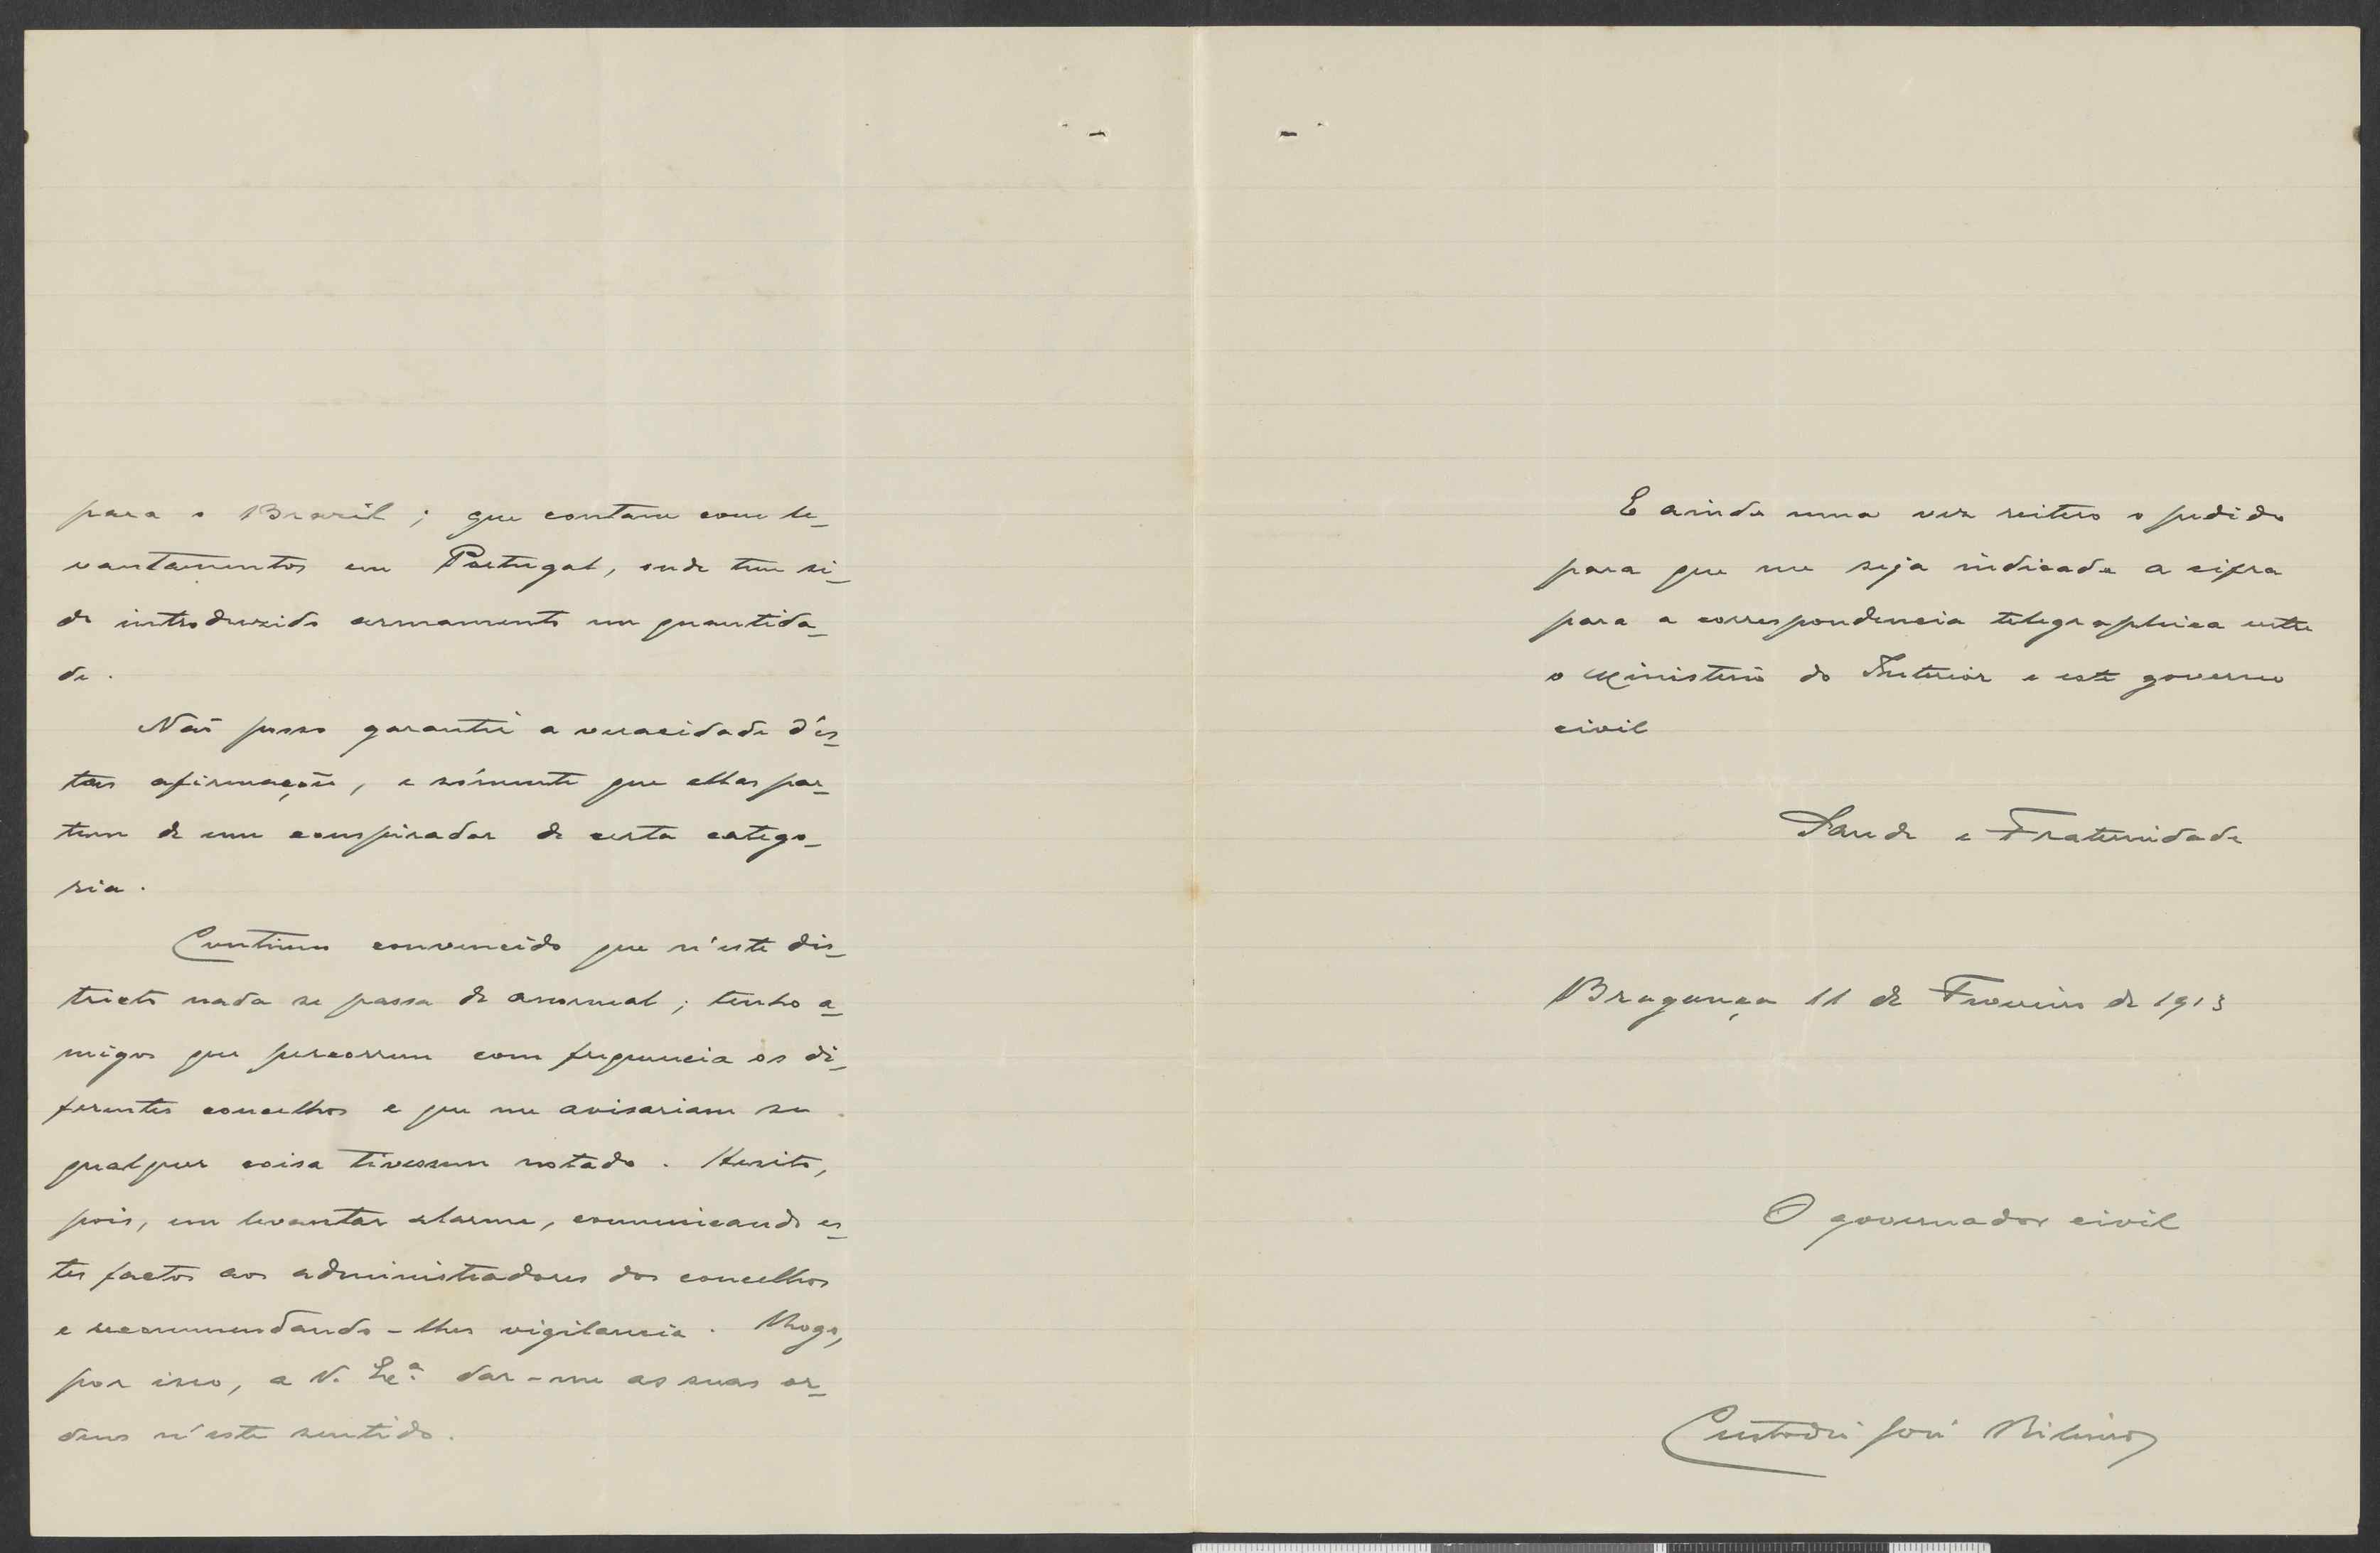 para o Brazil; que contam com le-
vantamentos em Portugal, onde tem si-
do introduzido armamento em quantida-
de.
Não posso garantir a veracidade d'es-
tas afirmações, e sómente que ellas par-
tem de um conspirador de certa catego-
ria.
Continuo convencido que n'este dis-
tricto nada se passa de anormal; tenho a-
migos que percorrem com frequencia os di-
ferentes concelhos e que me avisariam se
qualquer coisa tivessem notado. Hesito,
pois, em levantar alarme, communicando es-
tes factos aos administradores dos concelhos
e recommendando-lhes vigilancia. Rogo,
por isso, a V. Ex.ª dar-me as suas or-
dens n'este sentido.
E ainda uma vez reitero o pedido
para que me seja indicada a cifra
para a correspondencia telegraphica entre
o Ministerio do Interior e este governo
civil
Saude e Fraternidade
Bragança 11 de Fevereiro de 1913
O governador civil
Custodio José Ribeiro